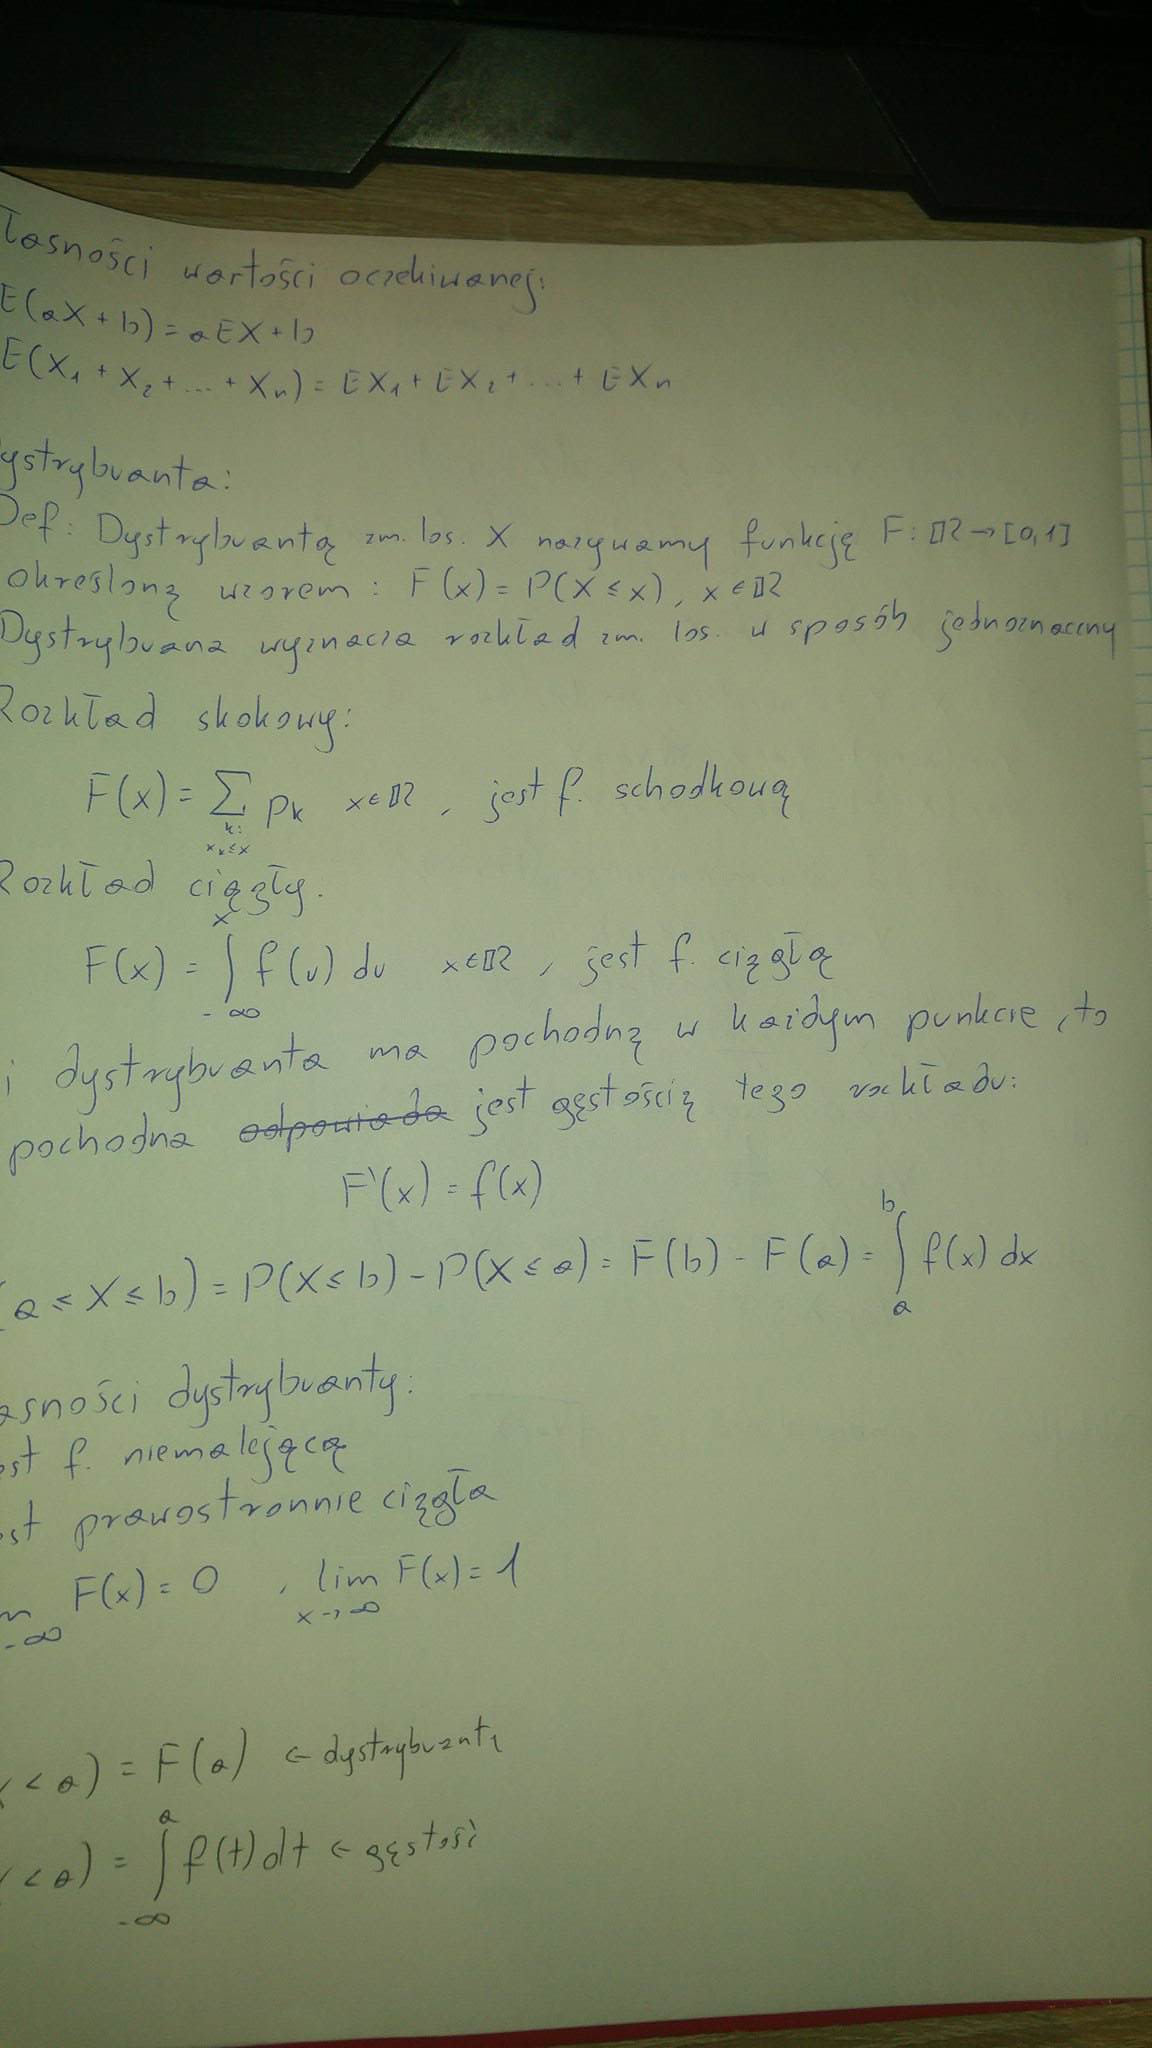 łasności wartości oczekiwanej:
E(aX + b) = aEX + b
E(X₁ + X₂ + ... + Xₙ) = EX₁ + EX₂ + ... + EXₙ
ystrybuanta:
Def: Dystrybuantą zm. los. X nazywamy funkcję F: ℝ → [0,1]
określoną wzorem: F(x) = P(X ≤ x), x ∈ ℝ
Dystrybuana wyznacza rozkład zm. los. w sposób jednoznaczny
Rozkład skokowy:
F(x) = ∑ pₖ x ∈ ℝ, jest f. schodkową
k:
xₖ ≤ x
Rozkład ciągły.
x
F(x) = ∫ f(u) du x ∈ ℝ, jest f. ciągłą
-∞
i dystrybuanta ma pochodną w każdym punkcie, to
pochodna odpowiada jest gęstością tego rozkładu:
F'(x) = f(x)
b
(a ≤ X ≤ b) = P(X ≤ b) - P(X ≤ a) = F(b) - F(a) = ∫ f(x) dx
a
asności dystrybuanty:
est f. niemalejącą
est prawostronnie ciągła
m F(x) = 0 , lim F(x) = 1
-∞ x → ∞
< a) = F(a) ← dystrybuantą
a
< a) = ∫ f(t) dt ← gęstość
-∞